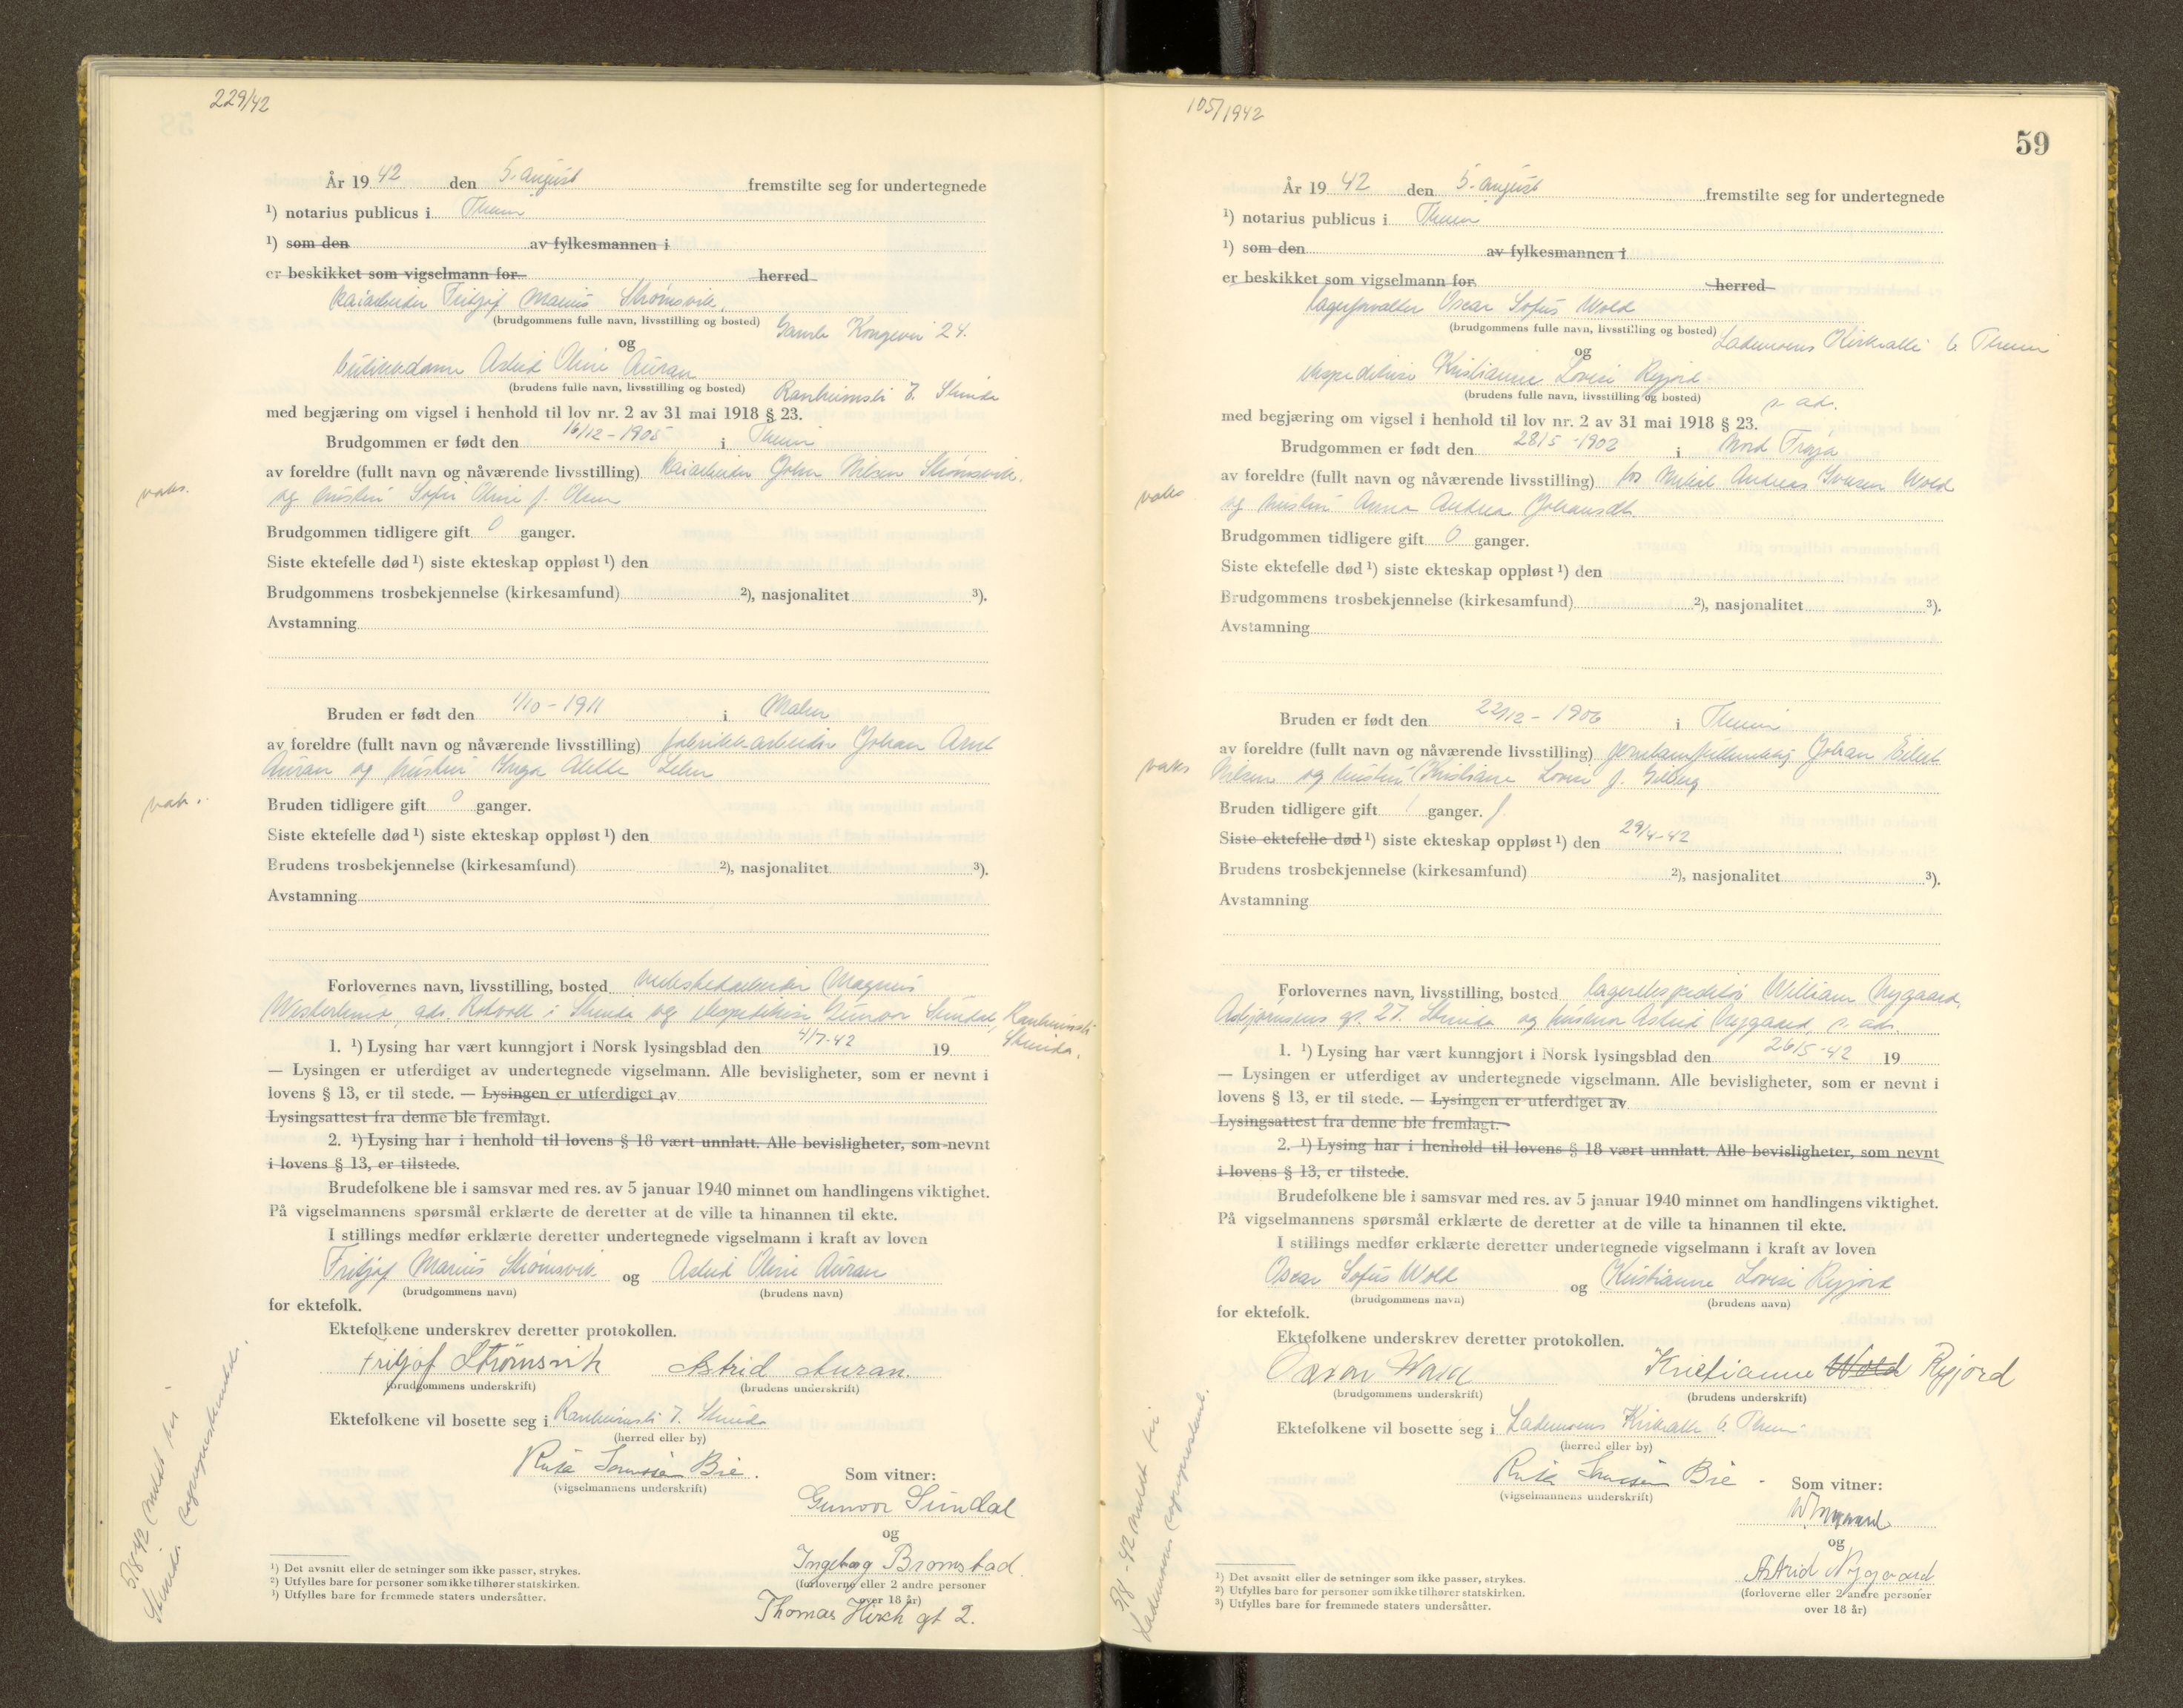 229/42
År 19 42 den 5. august fremstilte seg for undertegnede
¹) notarius publicus i Theim
¹) som den av fylkesmannen i
er beskikket som vigselmann for herred
kaiarbeider Fritjof Marius Strømsvik,
(brudgommens fulle navn, livsstilling og bosted) Gamle Kongevei 24.
og
butikkdame Astrid Oline Auran
(brudens fulle navn, livsstilling og bosted) Ranheimsli 7. Strinda
med begjæring om vigsel i henhold til lov nr. 2 av 31 mai 1918 § 23.
Brudgommen er født den 16/12 - 1905 i Theim
av foreldre (fullt navn og nåværende livsstilling) kaiarbeider Johan Nilsen Strømsvik.
vaks. og hustru Sofie Oline f. Olsen
Brudgommen tidligere gift 0 ganger.
Siste ektefelle død ¹) siste ekteskap oppløst ¹) den
Brudgommens trosbekjennelse (kirkesamfund) ²), nasjonalitet ³).
Avstamning
Bruden er født den 1/10 - 1911 i Malm
av foreldre (fullt navn og nåværende livsstilling) fabrikkarbeider Johan Arnt
Auran og hustru Inga
vaks.
Bruden tidligere gift 0 ganger.
Siste ektefelle død ¹) siste ekteskap oppløst ¹) den
Brudens trosbekjennelse (kirkesamfund) ²), nasjonalitet ³).
Avstamning
Forlovernes navn, livsstilling, bosted verkstedarbeider Magnus
adr. Rotvoll i Strinda og ekspeditrise Gunvor Sundal, Ranheimsli
Strinda.
1. ¹) Lysing har vært kunngjort i Norsk lysingsblad den 4/7-42 19
— Lysingen er utferdiget av undertegnede vigselmann. Alle bevisligheter, som er nevnt i
lovens § 13, er til stede. — Lysingen er utferdiget av
Lysingsattest fra denne ble fremlagt.
2. ¹) Lysing har i henhold til lovens § 18 vært unnlatt. Alle bevisligheter, som nevnt
i lovens § 13, er tilstede.
Brudefolkene ble i samsvar med res. av 5 januar 1940 minnet om handlingens viktighet.
På vigselmannens spørsmål erklærte de deretter at de ville ta hinannen til ekte.
I stillings medfør erklærte deretter undertegnede vigselmann i kraft av loven
Fritjof Marius Strømsvik og Astrid Oline Auran
(brudgommens navn) (brudens navn)
for ektefolk.
Ektefolkene underskrev deretter protokollen.
Fritjof Strömsvik Astrid Auran.
(brudgommens underskrift) (brudens underskrift)
Ektefolkene vil bosette seg i Ranheimsli 7. Strinda
(herred eller by)
Bie.
(vigselmannens underskrift)
Som vitner:
Gunvor Sundal
og
Ingeborg Bromstad
(forloverne eller 2 andre personer
over 18 år)
Thomas Hirch gt 2.
5/8-42 meldt til
Strinda
¹) Det avsnitt eller de setninger som ikke passer, strykes.
²) Utfylles bare for personer som ikke tilhører statskirken.
³) Utfylles bare for fremmede staters undersåtter.
105/1942
59
År 19 42 den 5. august fremstilte seg for undertegnede
¹) notarius publicus i Theim
¹) som den av fylkesmannen i
er beskikket som vigselmann for herred
lagerforvalter Oscar Sofus Wold
(brudgommens fulle navn, livsstilling og bosted) Lademoens Kirkealle 6. Theim
og
ekspeditrise Kristianne Lovise Rygjord
(brudens fulle navn, livsstilling og bosted) s. ad.
med begjæring om vigsel i henhold til lov nr. 2 av 31 mai 1918 § 23.
Brudgommen er født den 28/5 - 1902 i Nord Frøya
av foreldre (fullt navn og nåværende livsstilling) Mikal Andreas Iversen Wold
vaks og hustru Anna Andrea Johansdt.
Brudgommen tidligere gift 0 ganger.
Siste ektefelle død ¹) siste ekteskap oppløst ¹) den
Brudgommens trosbekjennelse (kirkesamfund) ²), nasjonalitet ³).
Avstamning
Bruden er født den 22/12 - 1906 i Theim
av foreldre (fullt navn og nåværende livsstilling) Johan Eilert
vaks Nilsen og hustru Kristiane Lovise f. Gellberg
Bruden tidligere gift 1 ganger.
Siste ektefelle død ¹) siste ekteskap oppløst ¹) den 29/4-42
Brudens trosbekjennelse (kirkesamfund) ²), nasjonalitet ³).
Avstamning
Forlovernes navn, livsstilling, bosted lagerekspeditør William Nygaard,
Asbjørnsens gt. 27. Strinda og hustru Astrid Nygaard, s. ads.
1. ¹) Lysing har vært kunngjort i Norsk lysingsblad den 26/5-42 19
— Lysingen er utferdiget av undertegnede vigselmann. Alle bevisligheter, som er nevnt i
lovens § 13, er til stede. — Lysingen er utferdiget av
Lysingsattest fra denne ble fremlagt.
2. ¹) Lysing har i henhold til lovens § 18 vært unnlatt. Alle bevisligheter, som nevnt
i lovens § 13, er tilstede.
Brudefolkene ble i samsvar med res. av 5 januar 1940 minnet om handlingens viktighet.
På vigselmannens spørsmål erklærte de deretter at de ville ta hinannen til ekte.
I stillings medfør erklærte deretter undertegnede vigselmann i kraft av loven
Oscar Sofus Wold og Kristianne Lovise Rygjord
(brudgommens navn) (brudens navn)
for ektefolk.
Ektefolkene underskrev deretter protokollen.
Oscar Wold Kristianne Wold Rygjord
(brudgommens underskrift) (brudens underskrift)
Ektefolkene vil bosette seg i Lademoens Kirkealle 6. Theim
(herred eller by)
Bie
(vigselmannens underskrift)
Som vitner:
W. Nygaard
og
Astrid Nygaard
(forloverne eller 2 andre personer
over 18 år)
5/8-42 meldt til
Lademoens
¹) Det avsnitt eller de setninger som ikke passer, strykes.
²) Utfylles bare for personer som ikke tilhører statskirken.
³) Utfylles bare for fremmede staters undersåtter.